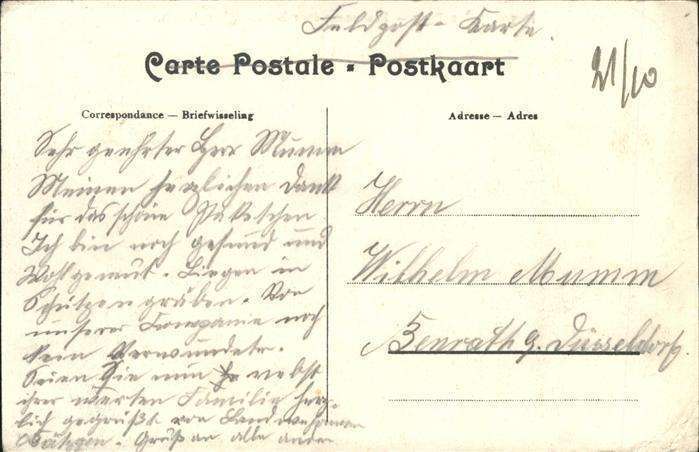 Feldpost-Karte.
Carte Postale - Postkaart
21/10
Correspondance — Briefwisseling
Adresse — Adres
Sehr geehrter Herr Mumm
Meinen herzlichen Dank
für das schöne Paketchen
Ich bin noch gesund und
Wolgemut. Liegen in
Schützengräben. Von
unserer Companie noch
kein Verwundeter.
Seien Sie nun nebst
ihrer werten Familie herz-
lich gegrüßt von Landwehrmann
Gruß an alle andern
Herrn
Wilhelm Mumm
Benrath g. Düsseldorf